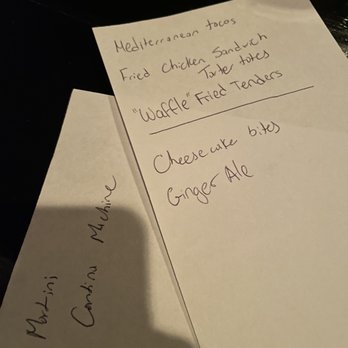 Mediterranean tacos
Fried Chicken Sandwich
Tater totes
"Waffle" Fried Tenders
Cheesecake bites
Ginger Ale
Martini
Machine